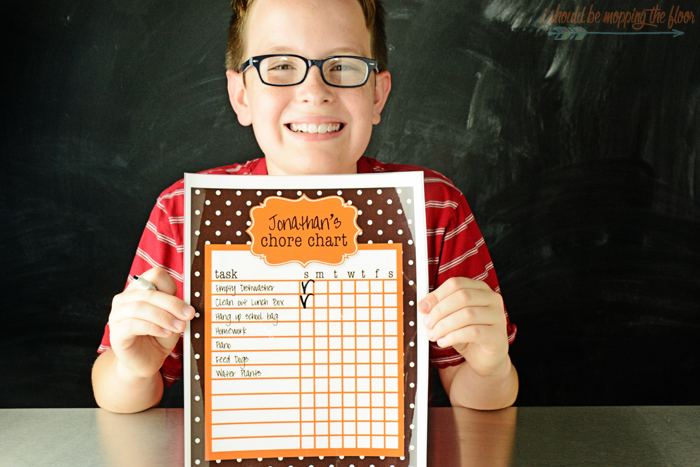 i should be mopping the floor
Jonathan's
chore chart
task s m t w t f s
Empty Dishwasher
Clean out Lunch Box
Hang up school bag
Homework
Piano
Feed Dogs
Water Plants